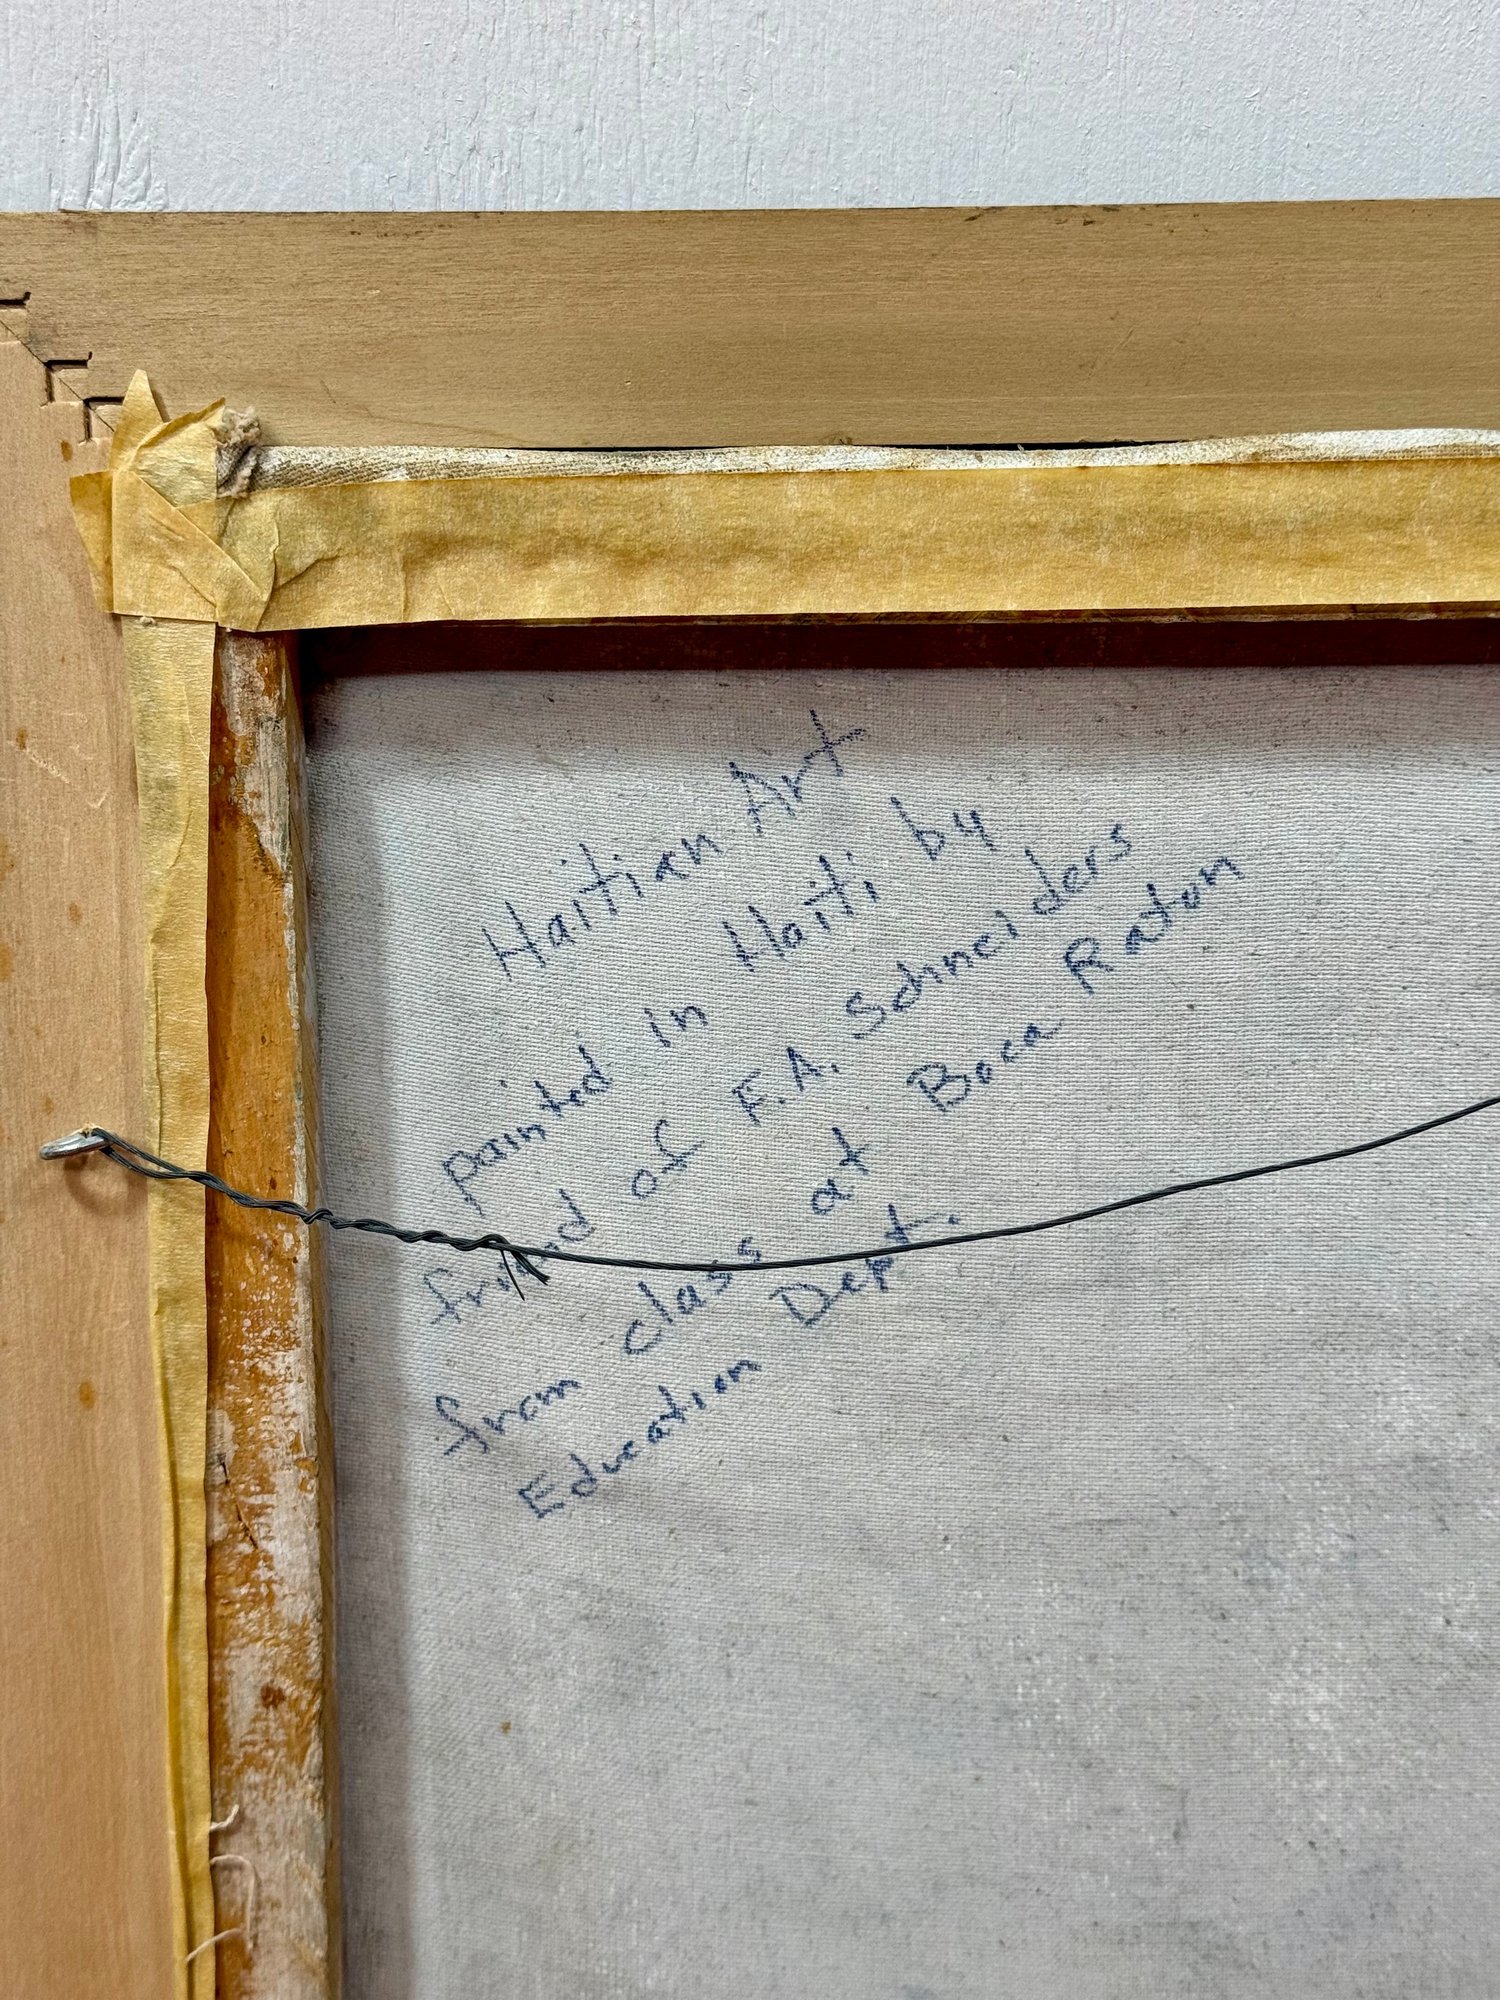 Haitian Art
painted in Haiti by
friend of F.A. Schneiders
from class at Boca Raton
Education Dept.